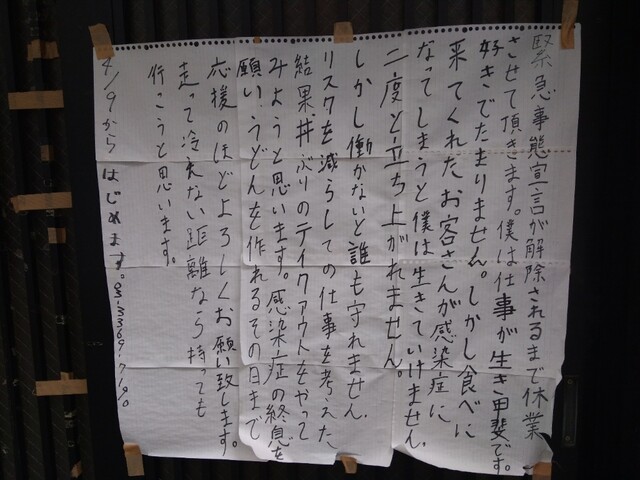 緊急事態宣言が解除されるまで休業
させて頂きます。僕は仕事が生き甲斐です。
好きでたまりません。しかし食べに
来てくれたお客さんが感染症に
なってしまうと僕は生きていけません。
二度と立ち上がれません。
しかし働かないと誰も守れません。
リスクを減らしての仕事を考えた
結果丼ぶりのテイクアウトをやって
みようと思います。感染症の終息を
願い、うどんを作れるその日まで
応援のほどよろしくお願い致します。
走って冷えない距離なら持っても
行こうと思います。
4/9からはじめます。03-3369-7190